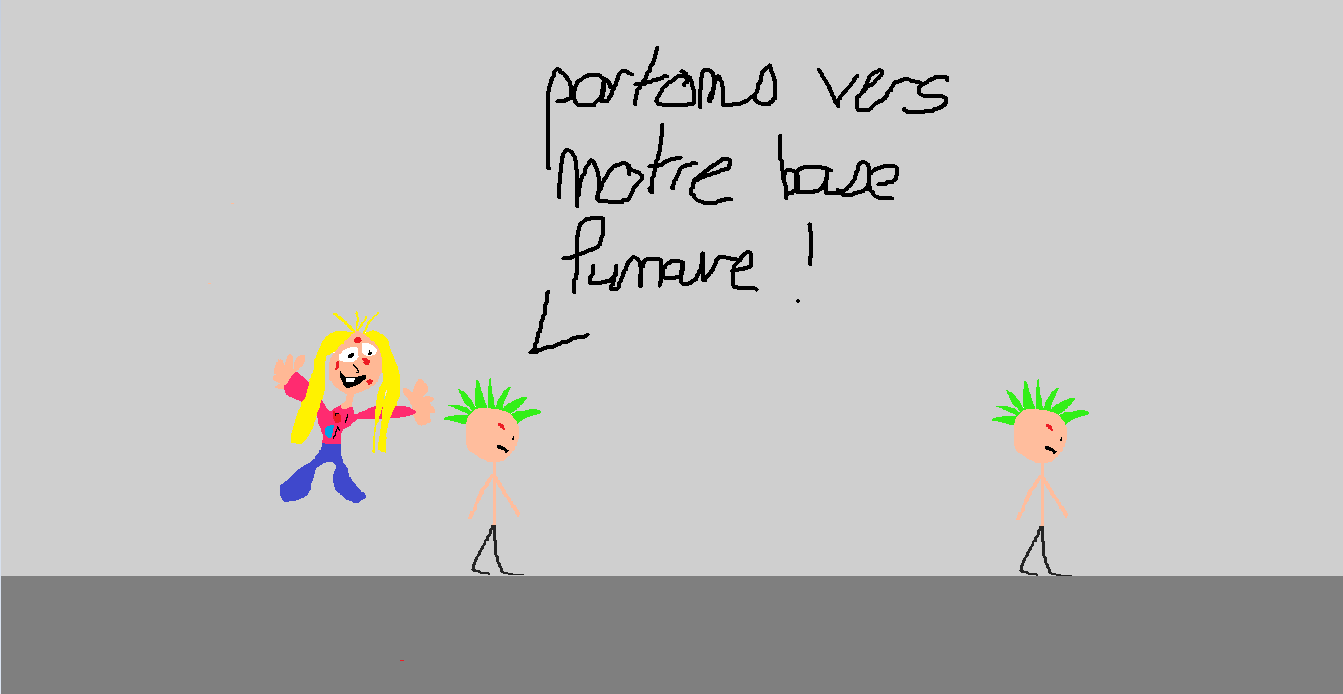 partons vers
notre base
lunaire !